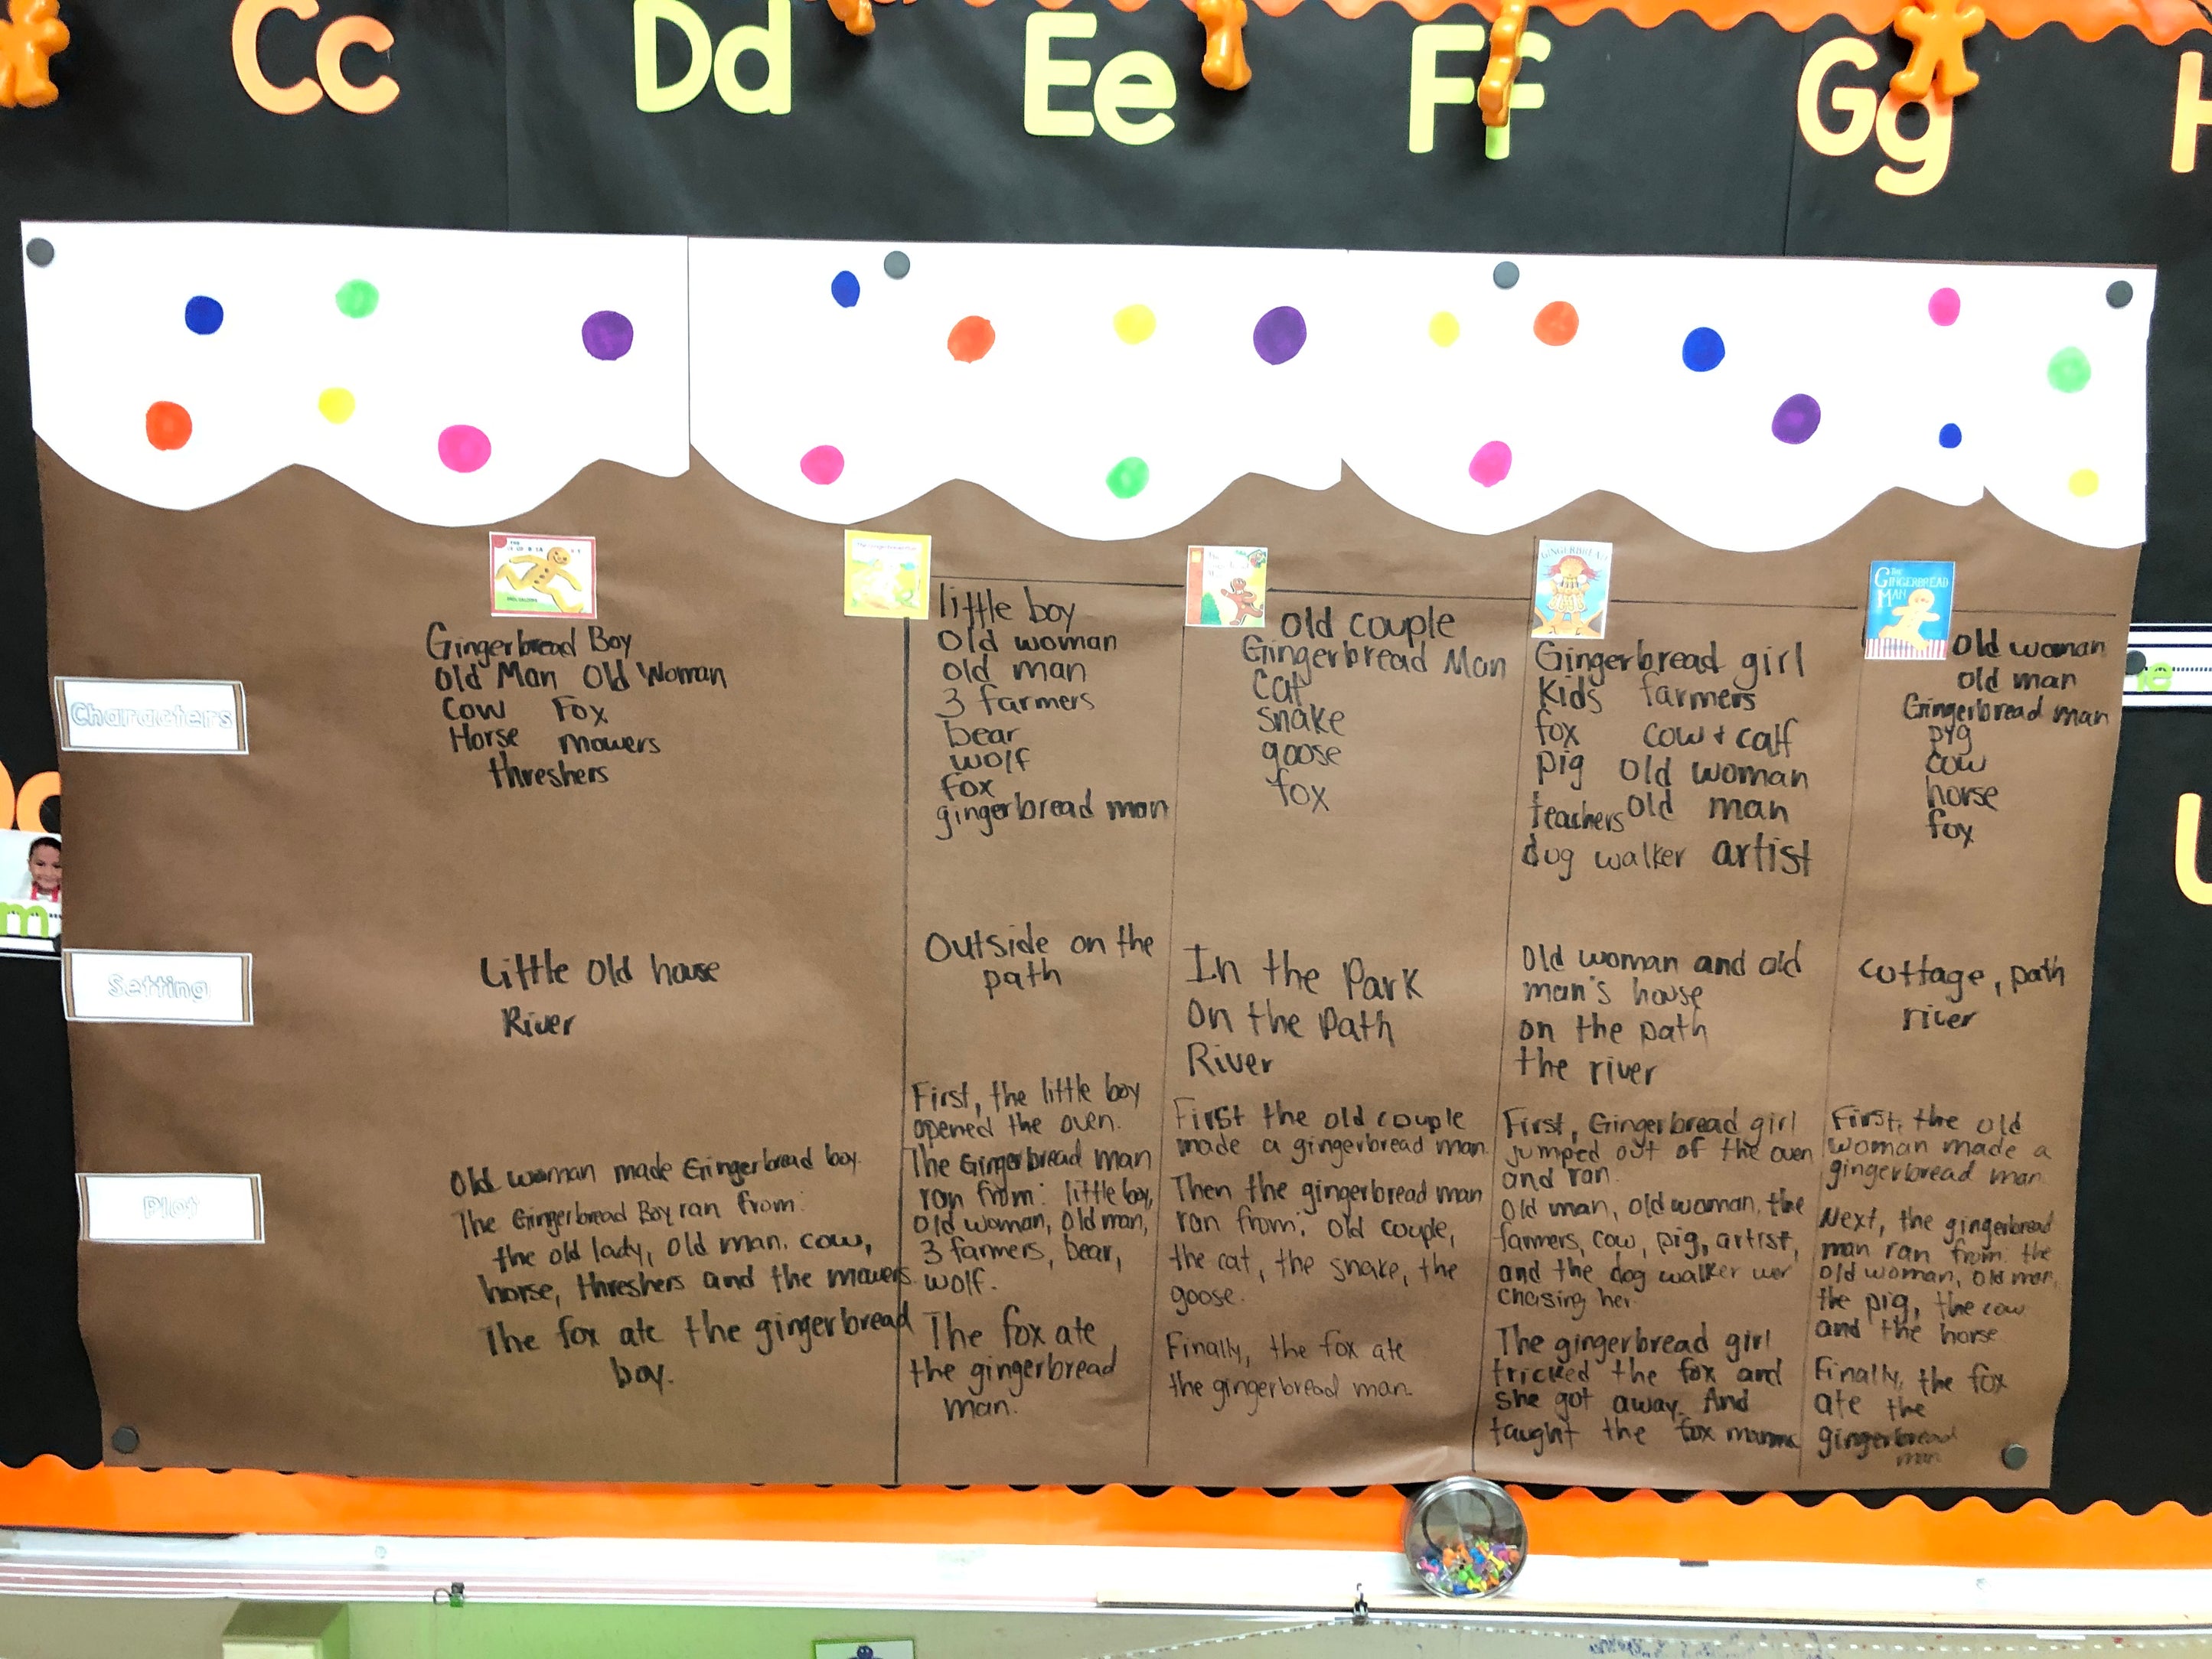 Cc
Dd
Ee
Ff
Gg
THE
PAUL GALDONE
The
GINGERBREAD
THE
GINGERBREAD
MAN
Characters
Gingerbread Boy
Old Man Old Woman
Cow Fox
Horse mowers
threshers
little boy
Old woman
old man
3 farmers
bear
wolf
fox
gingerbread man
old couple
Gingerbread Man
Cat
snake
goose
fox
Gingerbread girl
Kids farmers
fox cow + calf
pig old woman
teachers old man
dog walker artist
old woman
old man
Gingerbread man
pig
cow
horse
fox
me
m
Setting
Little Old house
River
Outside on the
path
In the Park
On the Path
River
Old woman and old
man's house
on the path
the river
cottage, path
river
Plot
Old woman made Gingerbread boy.
The Gingerbread Boy ran from:
the old lady, old man, cow,
horse, threshers and the mowers
The fox ate the gingerbread
boy.
First, the little boy
opened the oven.
The Gingerbread man
ran from: little boy,
old woman, old man,
3 farmers, bear,
wolf.
The fox ate
the gingerbread
man.
First the old couple
made a gingerbread man.
Then the gingerbread man
ran from: old couple,
the cat, the snake, the
goose.
Finally, the fox ate
the gingerbread man.
First, Gingerbread girl
jumped out of the oven
and ran.
Old man, old woman, the
farmers, cow, pig, artist,
and the dog walker wer
chasing her.
The gingerbread girl
tricked the fox and
she got away. And
taught the fox
First, the old
woman made a
gingerbread man
Next, the gingerbread
man ran from: the
old woman, old man,
the pig, the cow
and the horse
Finally, the fox
ate the
gingerbread
man